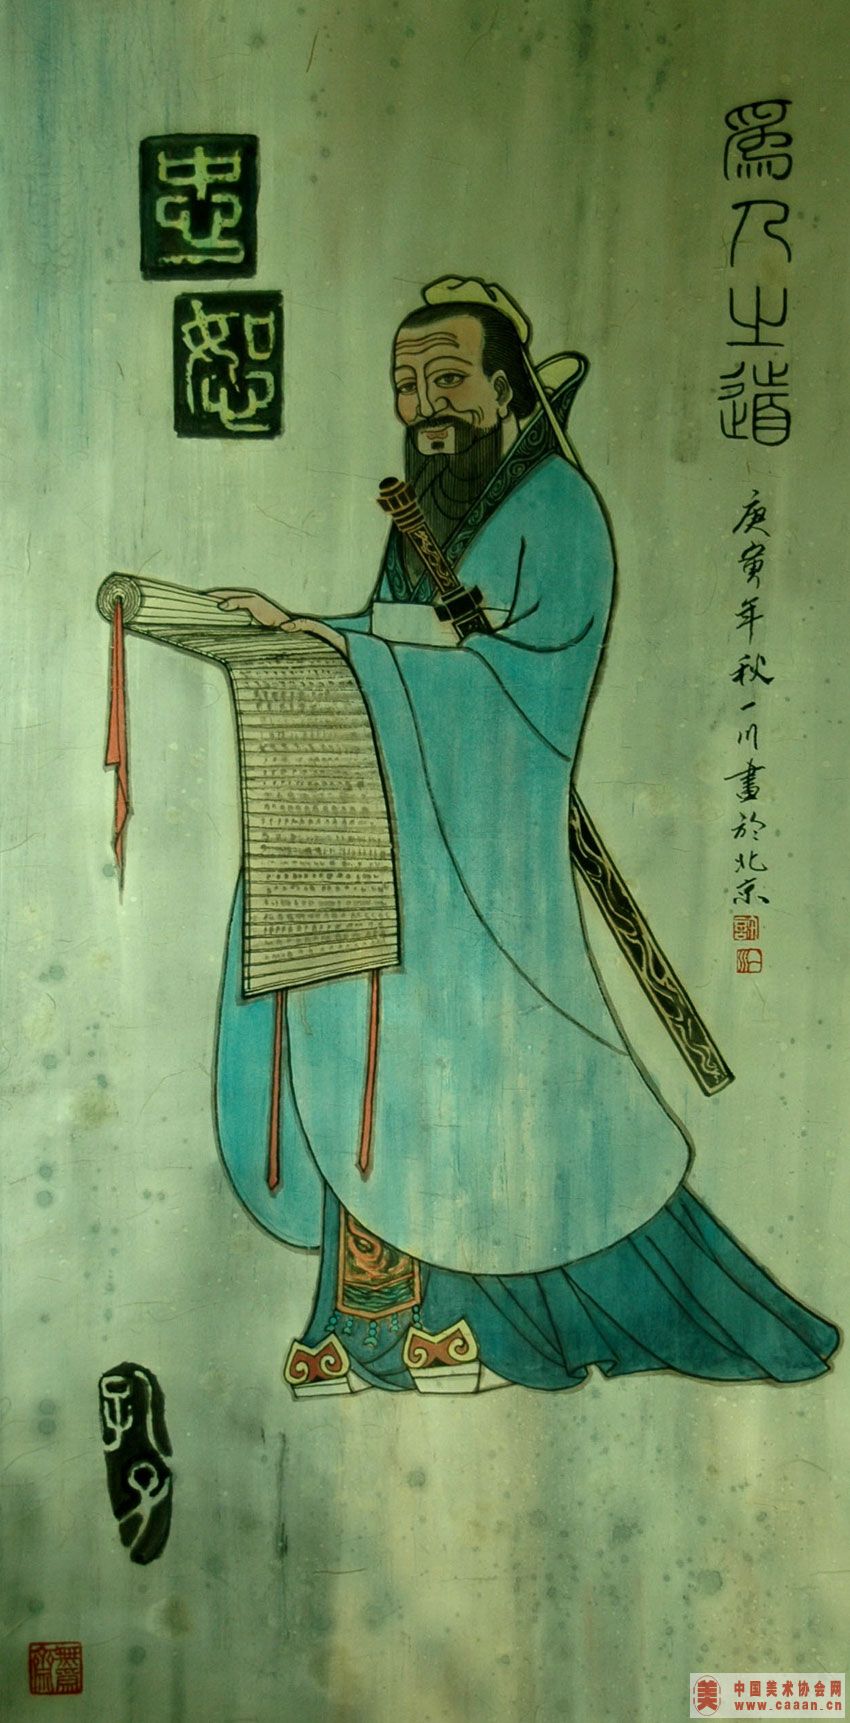 為人之道
庚寅年秋一川畫於北京
忠
恕
孔子
中国美术协会网
www.caaan.cn